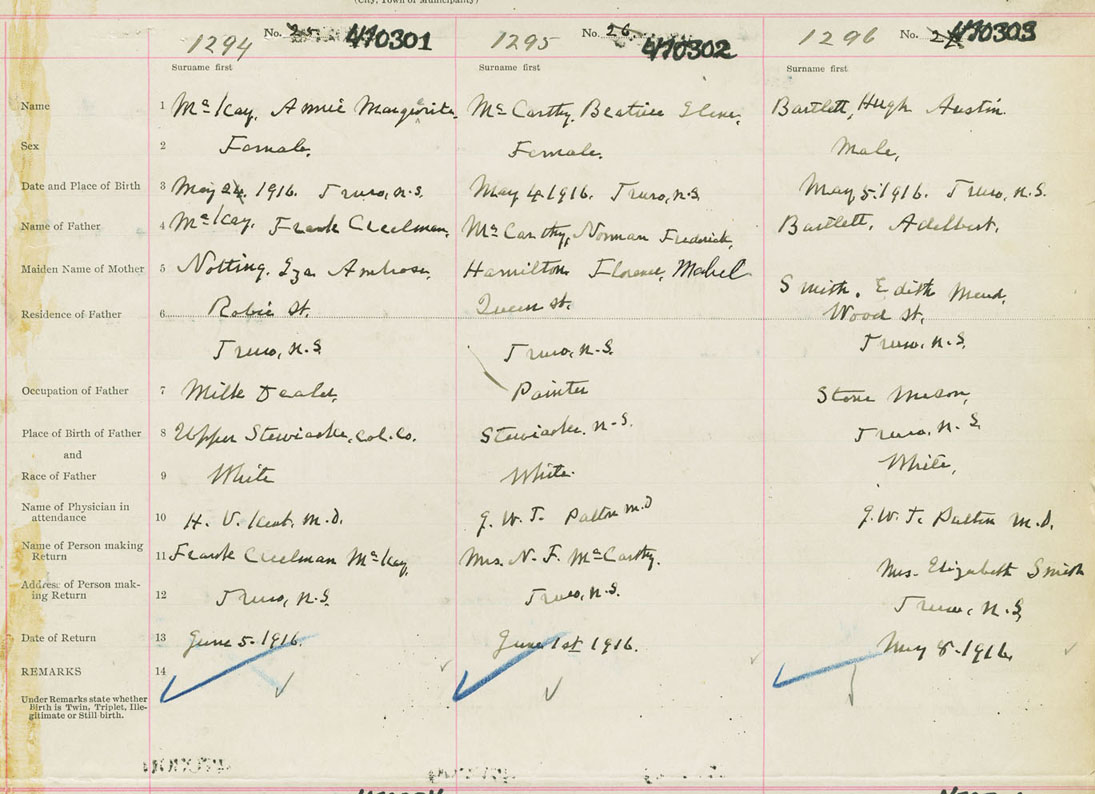 (City, Town or Municipality)
1294 No. 25 470301 1295 No. 26 470302 1296 No. 27 470303
Surname first Surname first Surname first
Name 1 McKay, Annie Margarita McCarthy, Beatrice Bartlett, Hugh Austin
Sex 2 Female. Female. Male,
Date and Place of Birth 3 May 24. 1916. Truro, N.S. May 4. 1916. Truro, N.S. May 5. 1916. Truro, N.S.
Name of Father 4 McKay, Frank Creelman, McCarthy, Norman Frederick, Bartlett, Adelbert,
Maiden Name of Mother 5 Notting, Ambrose, Hamilton Florence, Mabel Smith, Edith Maud,
Residence of Father 6 Robie St. Queen St. Wood St,
Truro, N.S. Truro, N.S. Truro, N.S.
Occupation of Father 7 Milk Dealer, Painter Stone Mason,
Place of Birth of Father 8 Upper Stewiacke, Col. Co. Stewiacke, N.S. Truro, N.S.
and
Race of Father 9 White White White,
Name of Physician in
attendance 10 H. V. Kent, M.D. J. W. T. Patton M.D J. W. T. Patton M.D.
Name of Person making
Return 11 Frank Creelman McKay, Mrs. N. F. McCarthy. Mrs. Elizabeth Smith
Address of Person mak-
ing Return 12 Truro, N.S. Truro, N.S. Truro, N.S
Date of Return 13 June 5. 1916. June 1st 1916. May 8. 1916,
REMARKS 14
Under Remarks state whether
Birth is Twin, Triplet, Ille-
gitimate or Still-birth.